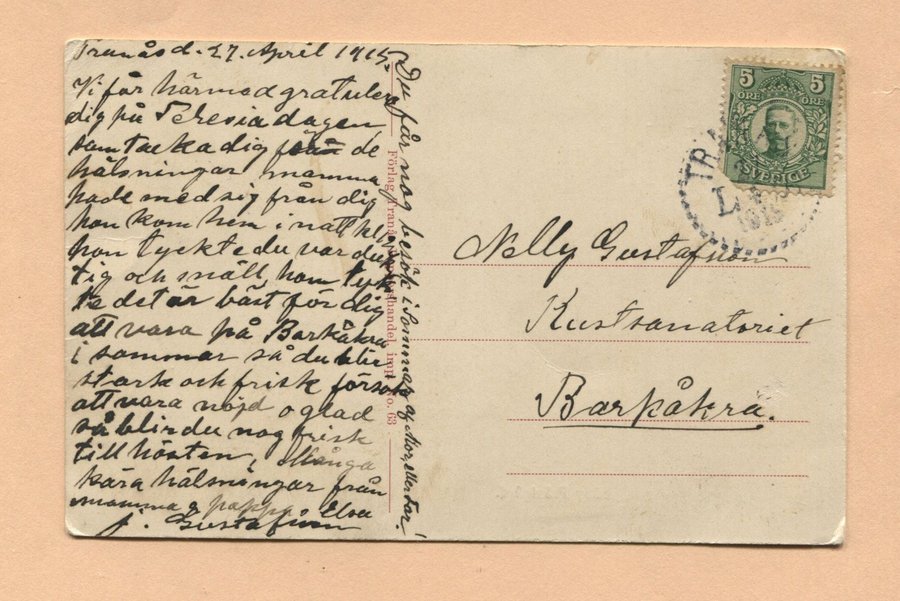 Tranås d. 27. April 1915.
Vi får härmed gratulera
dig på Teresiadagen
samt tacka dig för de
hälsningar mamma
hade med sig från dig
hon kom hem i natt kl
hon tyckte du var duk
tig och snäll, hon tyck
te det är bäst för dig
att vara på Barkåkra
i sommar så du blir
stark och frisk försök
att vara nöjd o glad
så blir du nog frisk
till hösten, Många
kära hälsningar från
mamma o pappa Elsa
J. Gustafsson
Du får nog besök i Sommar af Mor eller Far!
Förlag Tranås handel, imp. No. 63
5 5
ÖRE ÖRE
SVERIGE
TRA
1915
Nelly Gustafsson
Kustsanatoriet
Barkåkra.